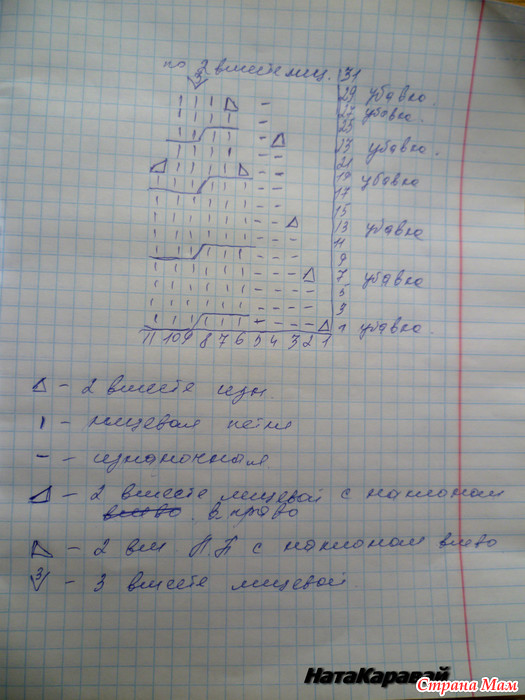 по 2 вместе лиц. 31
3
29 убавка.
27 убавка.
25
23 убавка.
21
19 убавка
17
15
13 убавка
11
9
7 убавка
5
3
1 убавка.
11 10 9 8 7 6 5 4 3 2 1
- 2 вместе изн.
- лицевая петля
- изнаночная
- 2 вместе лицевой с наклоном
вправо
- 2 вм. Л П с наклоном влево
3 - 3 вместе лицевой.
НатаКаравай
Страна Мам